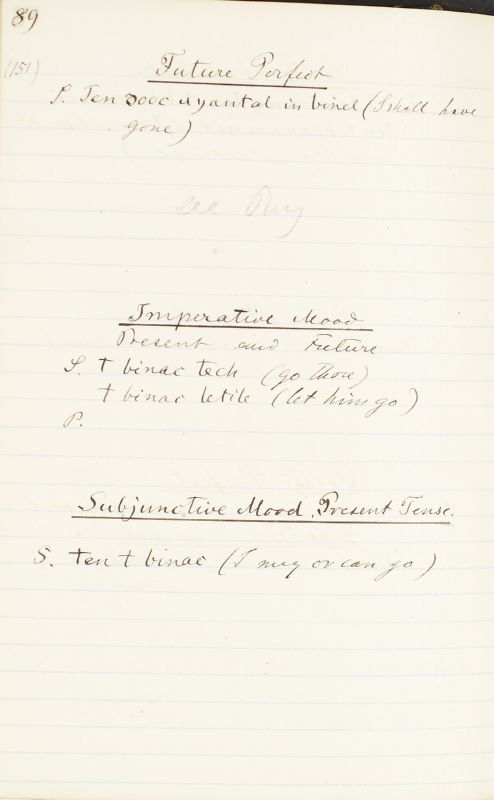 89
(151)
Future Perfect
S. Ten ɔooc ayantal in binel (I shall have
gone)
see
Imperative Mood
Present and Future
S. t binac tech (go thou)
t binac letile (let him go)
P.
Subjunctive Mood, Present Tense.
S. ten t binac (I may or can go)